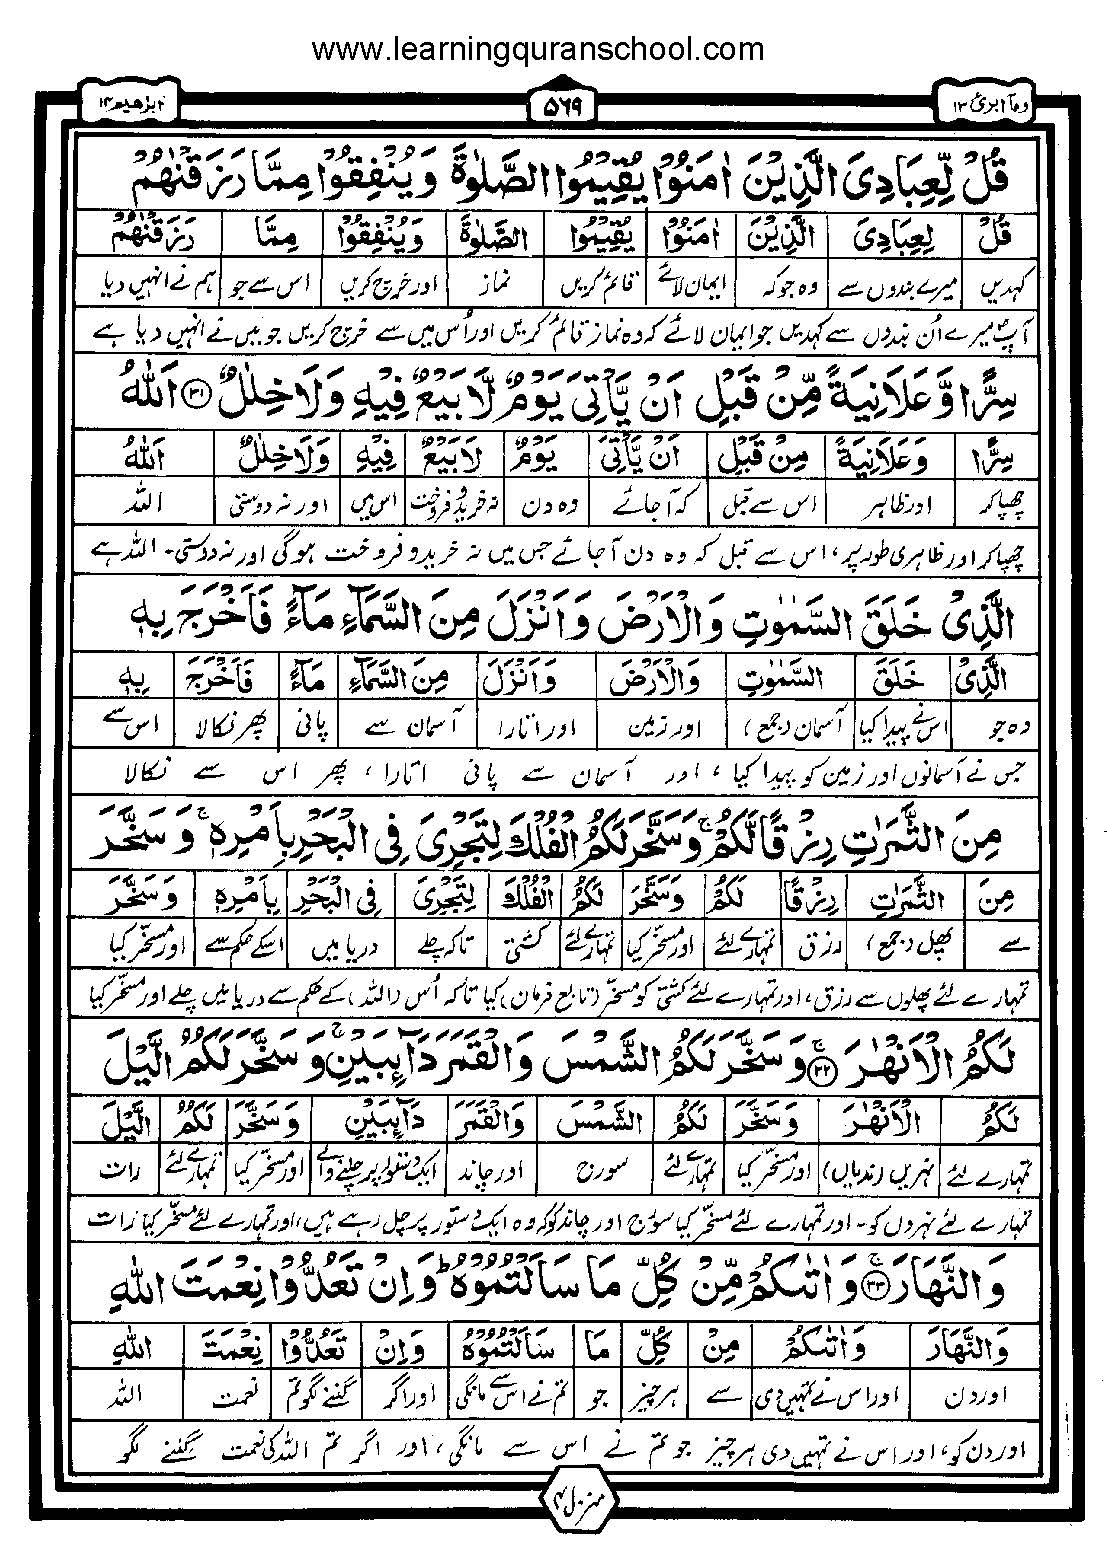 www.learningquranschool.com
وما ابرئ ۱۳
۵۶۹
ابرٰھیم ۱۴
قُلْ لِّعِبَادِیَ الَّذِیْنَ اٰمَنُوْا یُقِیْمُوا الصَّلٰوةَ وَیُنْفِقُوْا مِمَّا رَزَقْنٰهُمْ
قُلْ لِّعِبَادِیَ الَّذِیْنَ اٰمَنُوْا یُقِیْمُوا الصَّلٰوةَ وَیُنْفِقُوْا مِمَّا رَزَقْنٰهُمْ
کہدیں میرے بندوں سے وہ جو کہ ایمان لائے قائم کریں نماز اور خرچ کریں اس سے جو ہم نے انہیں دیا
آپؐ میرے اُن بندوں سے کہدیں جو ایمان لائے کہ وہ نماز قائم کریں اور اُس میں سے خرچ کریں جو میں نے انہیں دیا ہے
سِرًّا وَّعَلَانِیَةً مِّنْ قَبْلِ اَنْ یَّاْتِیَ یَوْمٌ لَّا بَیْعٌ فِیْهِ وَلَا خِلٰلٌ ۳۱ اَللّٰهُ
سِرًّا وَعَلَانِیَةً مِنْ قَبْلِ اَنْ یَّاْتِیَ یَوْمٌ لَا بَیْعٌ فِیْهِ وَلَا خِلٰلٌ اَللّٰهُ
چھپا کر اور ظاہر اس سے قبل کہ آجائے وہ دن نہ خرید و فروخت اس میں اور نہ دوستی اللہ
چھپا کر اور ظاہری طور پر، اس سے قبل کہ وہ دن آ جائے جس میں نہ خرید و فروخت ہوگی اور نہ دوستی۔ اللہ ہے
الَّذِیْ خَلَقَ السَّمٰوٰتِ وَالْاَرْضَ وَاَنْزَلَ مِنَ السَّمَآءِ مَآءً فَاَخْرَجَ بِهٖ
الَّذِیْ خَلَقَ السَّمٰوٰتِ وَالْاَرْضَ وَاَنْزَلَ مِنَ السَّمَآءِ مَآءً فَاَخْرَجَ بِهٖ
وہ جو اس نے پیدا کیا آسمان (جمع) اور زمین اور اتارا آسمان سے پانی پھر نکالا اس سے
جس نے آسمانوں اور زمین کو پیدا کیا، اور آسمان سے پانی اتارا، پھر اس سے نکالا
مِنَ الثَّمَرٰتِ رِزْقًا لَّكُمْ ۚ وَسَخَّرَ لَكُمُ الْفُلْكَ لِتَجْرِیَ فِی الْبَحْرِ بِاَمْرِهٖ ۚ وَسَخَّرَ
مِنَ الثَّمَرٰتِ رِزْقًا لَكُمْ وَسَخَّرَ لَكُمُ الْفُلْكَ لِتَجْرِیَ فِی الْبَحْرِ بِاَمْرِهٖ وَسَخَّرَ
سے پھل (جمع) رزق تمہارے لئے اور مسخر کیا تمہارے لئے کشتی تاکہ چلے دریا میں اسکے حکم سے اور مسخر کیا
تمہارے لئے پھلوں سے رزق، اور تمہارے لئے کشتی کو مسخّر (تابع فرمان) کیا تاکہ اُس (اللہ) کے حکم سے دریا میں چلے اور مسخّر کیا
لَكُمُ الْاَنْهٰرَ ۚ ۳۲ وَسَخَّرَ لَكُمُ الشَّمْسَ وَالْقَمَرَ دَآىِٕبَیْنِ ۚ وَسَخَّرَ لَكُمُ الَّیْلَ
لَكُمُ الْاَنْهٰرَ وَسَخَّرَ لَكُمُ الشَّمْسَ وَالْقَمَرَ دَآىِٕبَیْنِ وَسَخَّرَ لَكُمُ الَّیْلَ
تمہارے لئے نہریں (ندیاں) اور مسخر کیا تمہارے لئے سورج اور چاند ایک دستور پر چلنے والے اور مسخر کیا تمہارے لئے رات
تمہارے لئے نہروں کو۔ اور تمہارے لئے مسخّر کیا سورج اور چاند کو کہ وہ ایک دستور پر چل رہے ہیں، اور تمہارے لئے مسخّر کیا رات
وَالنَّهَارَ ۚ ۳۳ وَاٰتٰىكُمْ مِّنْ كُلِّ مَا سَاَلْتُمُوْهُ ؕ وَاِنْ تَعُدُّوْا نِعْمَتَ اللّٰهِ
وَالنَّهَارَ وَاٰتٰىكُمْ مِنْ كُلِّ مَا سَاَلْتُمُوْهُ وَاِنْ تَعُدُّوْا نِعْمَتَ اللّٰهِ
اور دن اور اس نے تمہیں دی سے ہر چیز جو تم نے اس سے مانگی اور اگر گننے لگو تم نعمت اللہ
اور دن کو، اور اس نے تمہیں دی ہر چیز جو تم نے اس سے مانگی، اور اگر تم اللہ کی نعمت گننے لگو
منزل ۳